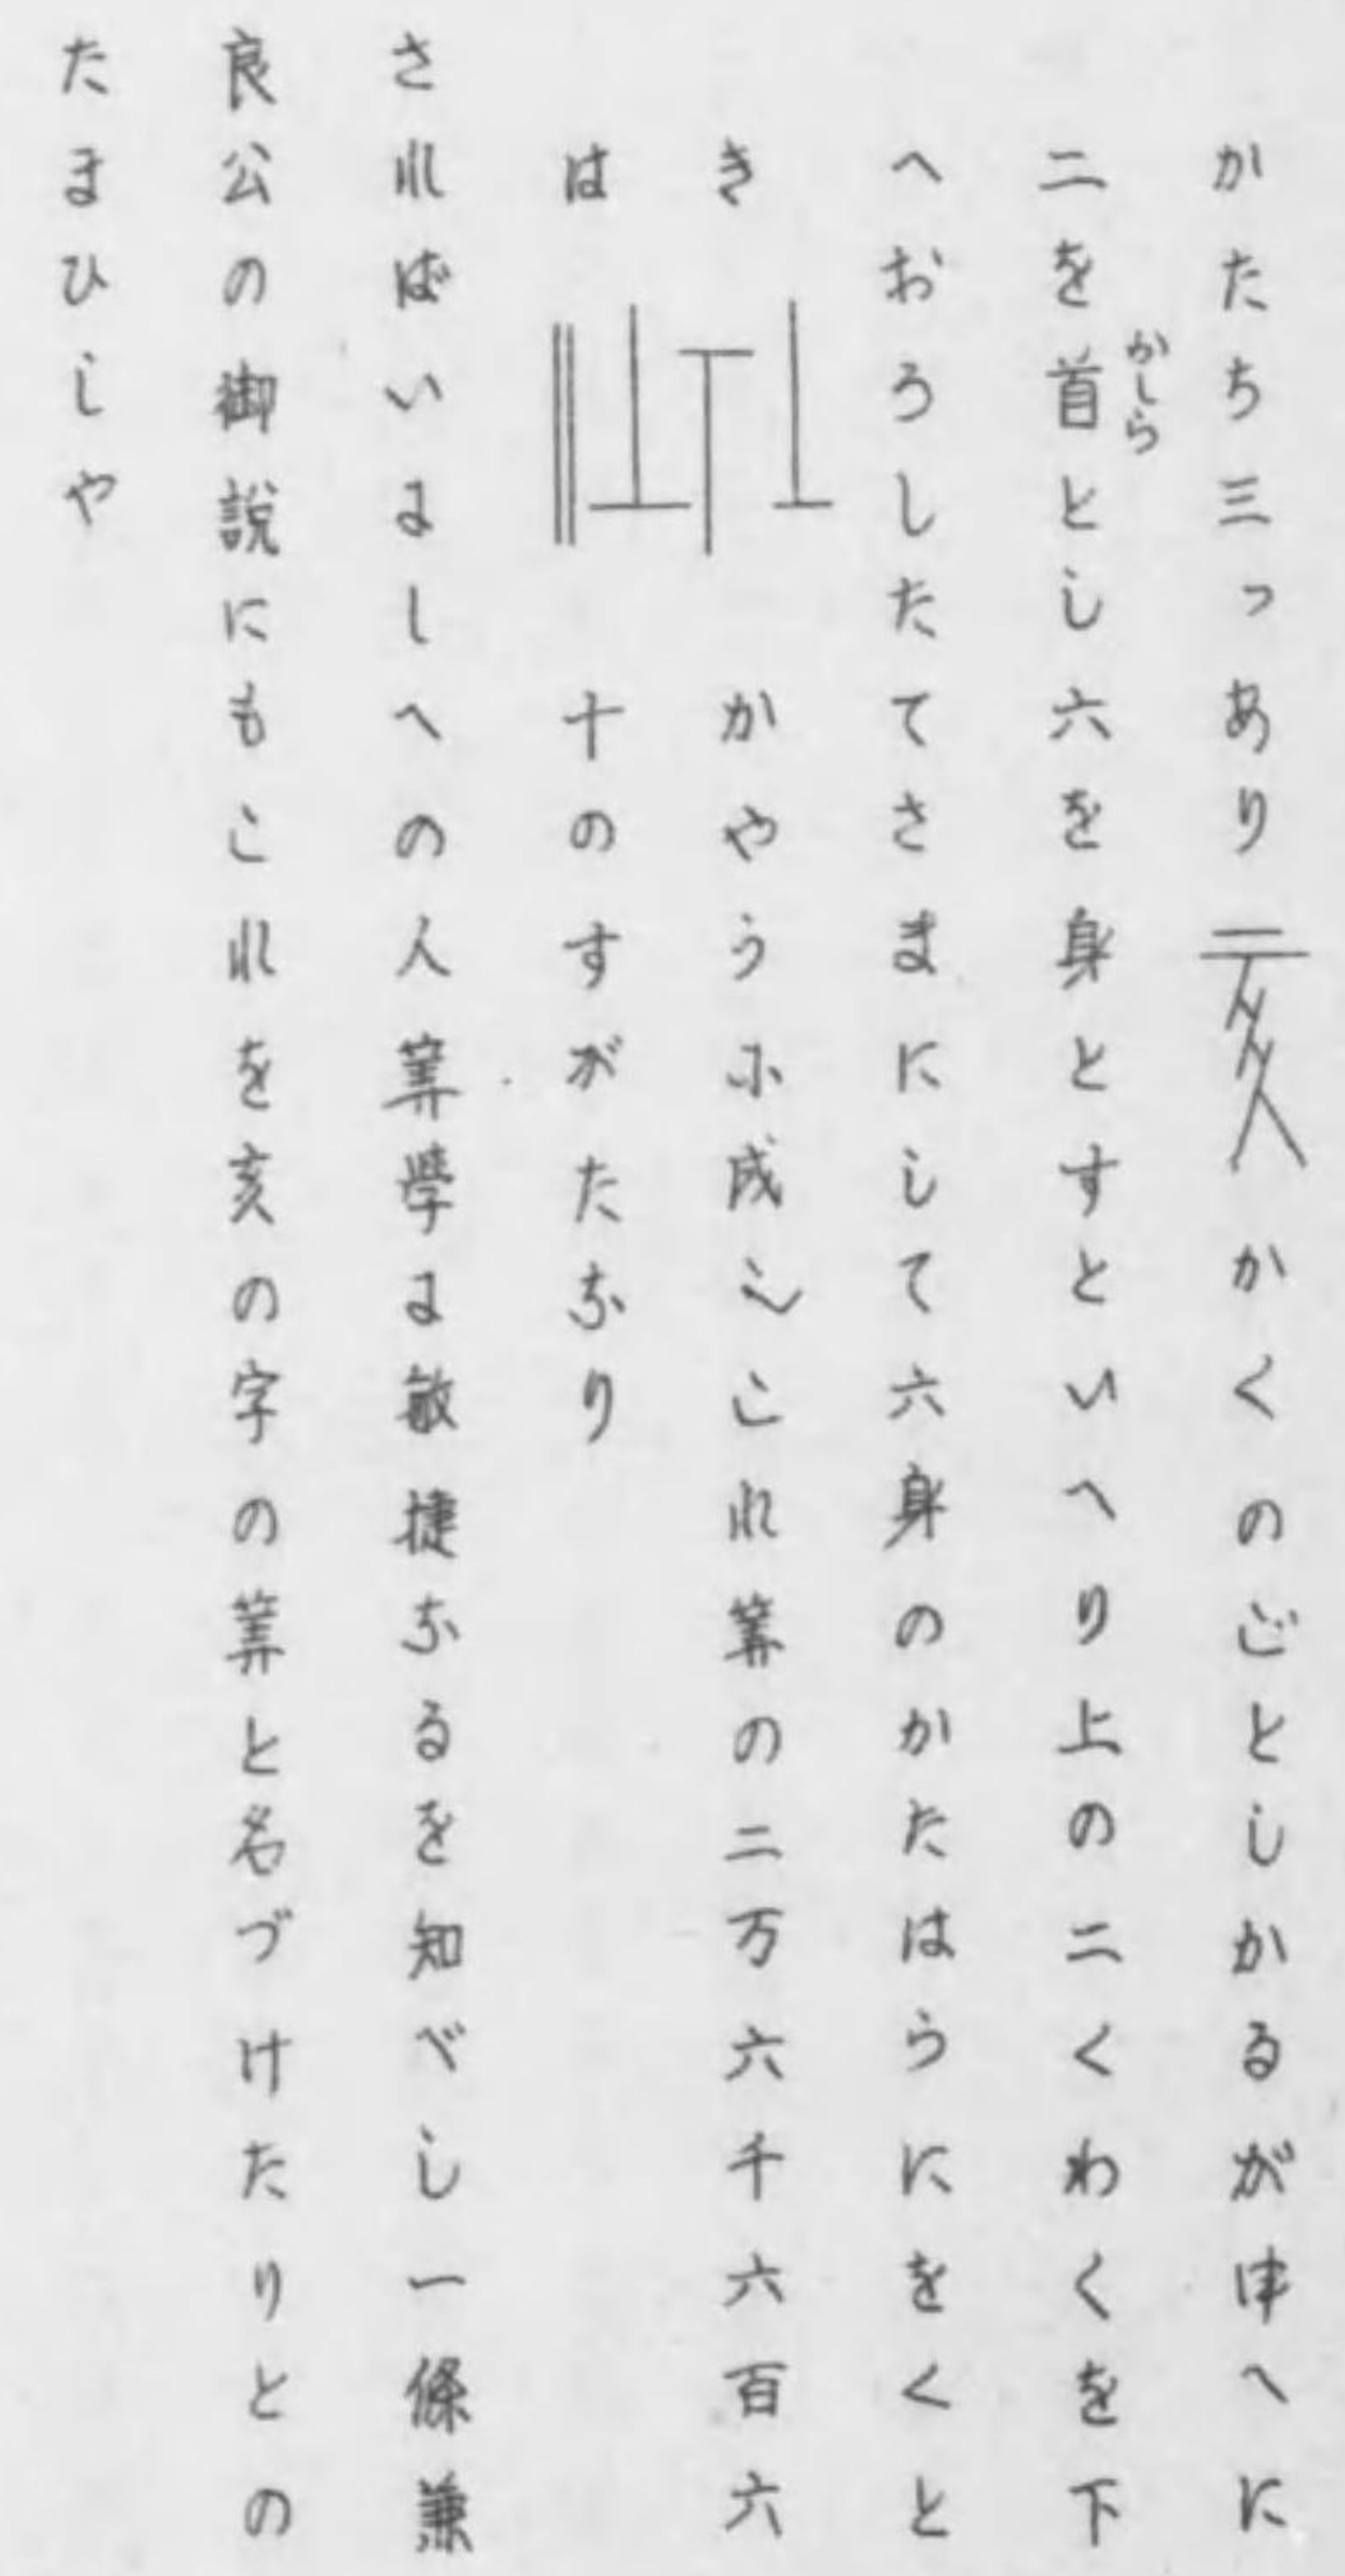 かたち三つあり かくのごとしかるが申へに
二を首とし六を身とすといへり上の二くわくを下
かしら
へおろしたてさまにして六身のかたはらにをくと
き かやう小成〻これ筭の二万六千六百六
は 十のすがたなり
さればいにしへの人筭學に敏捷なるを知べし一條兼
良公の御説にもこれを亥の字の筭と名づけたりとの
たまひしや